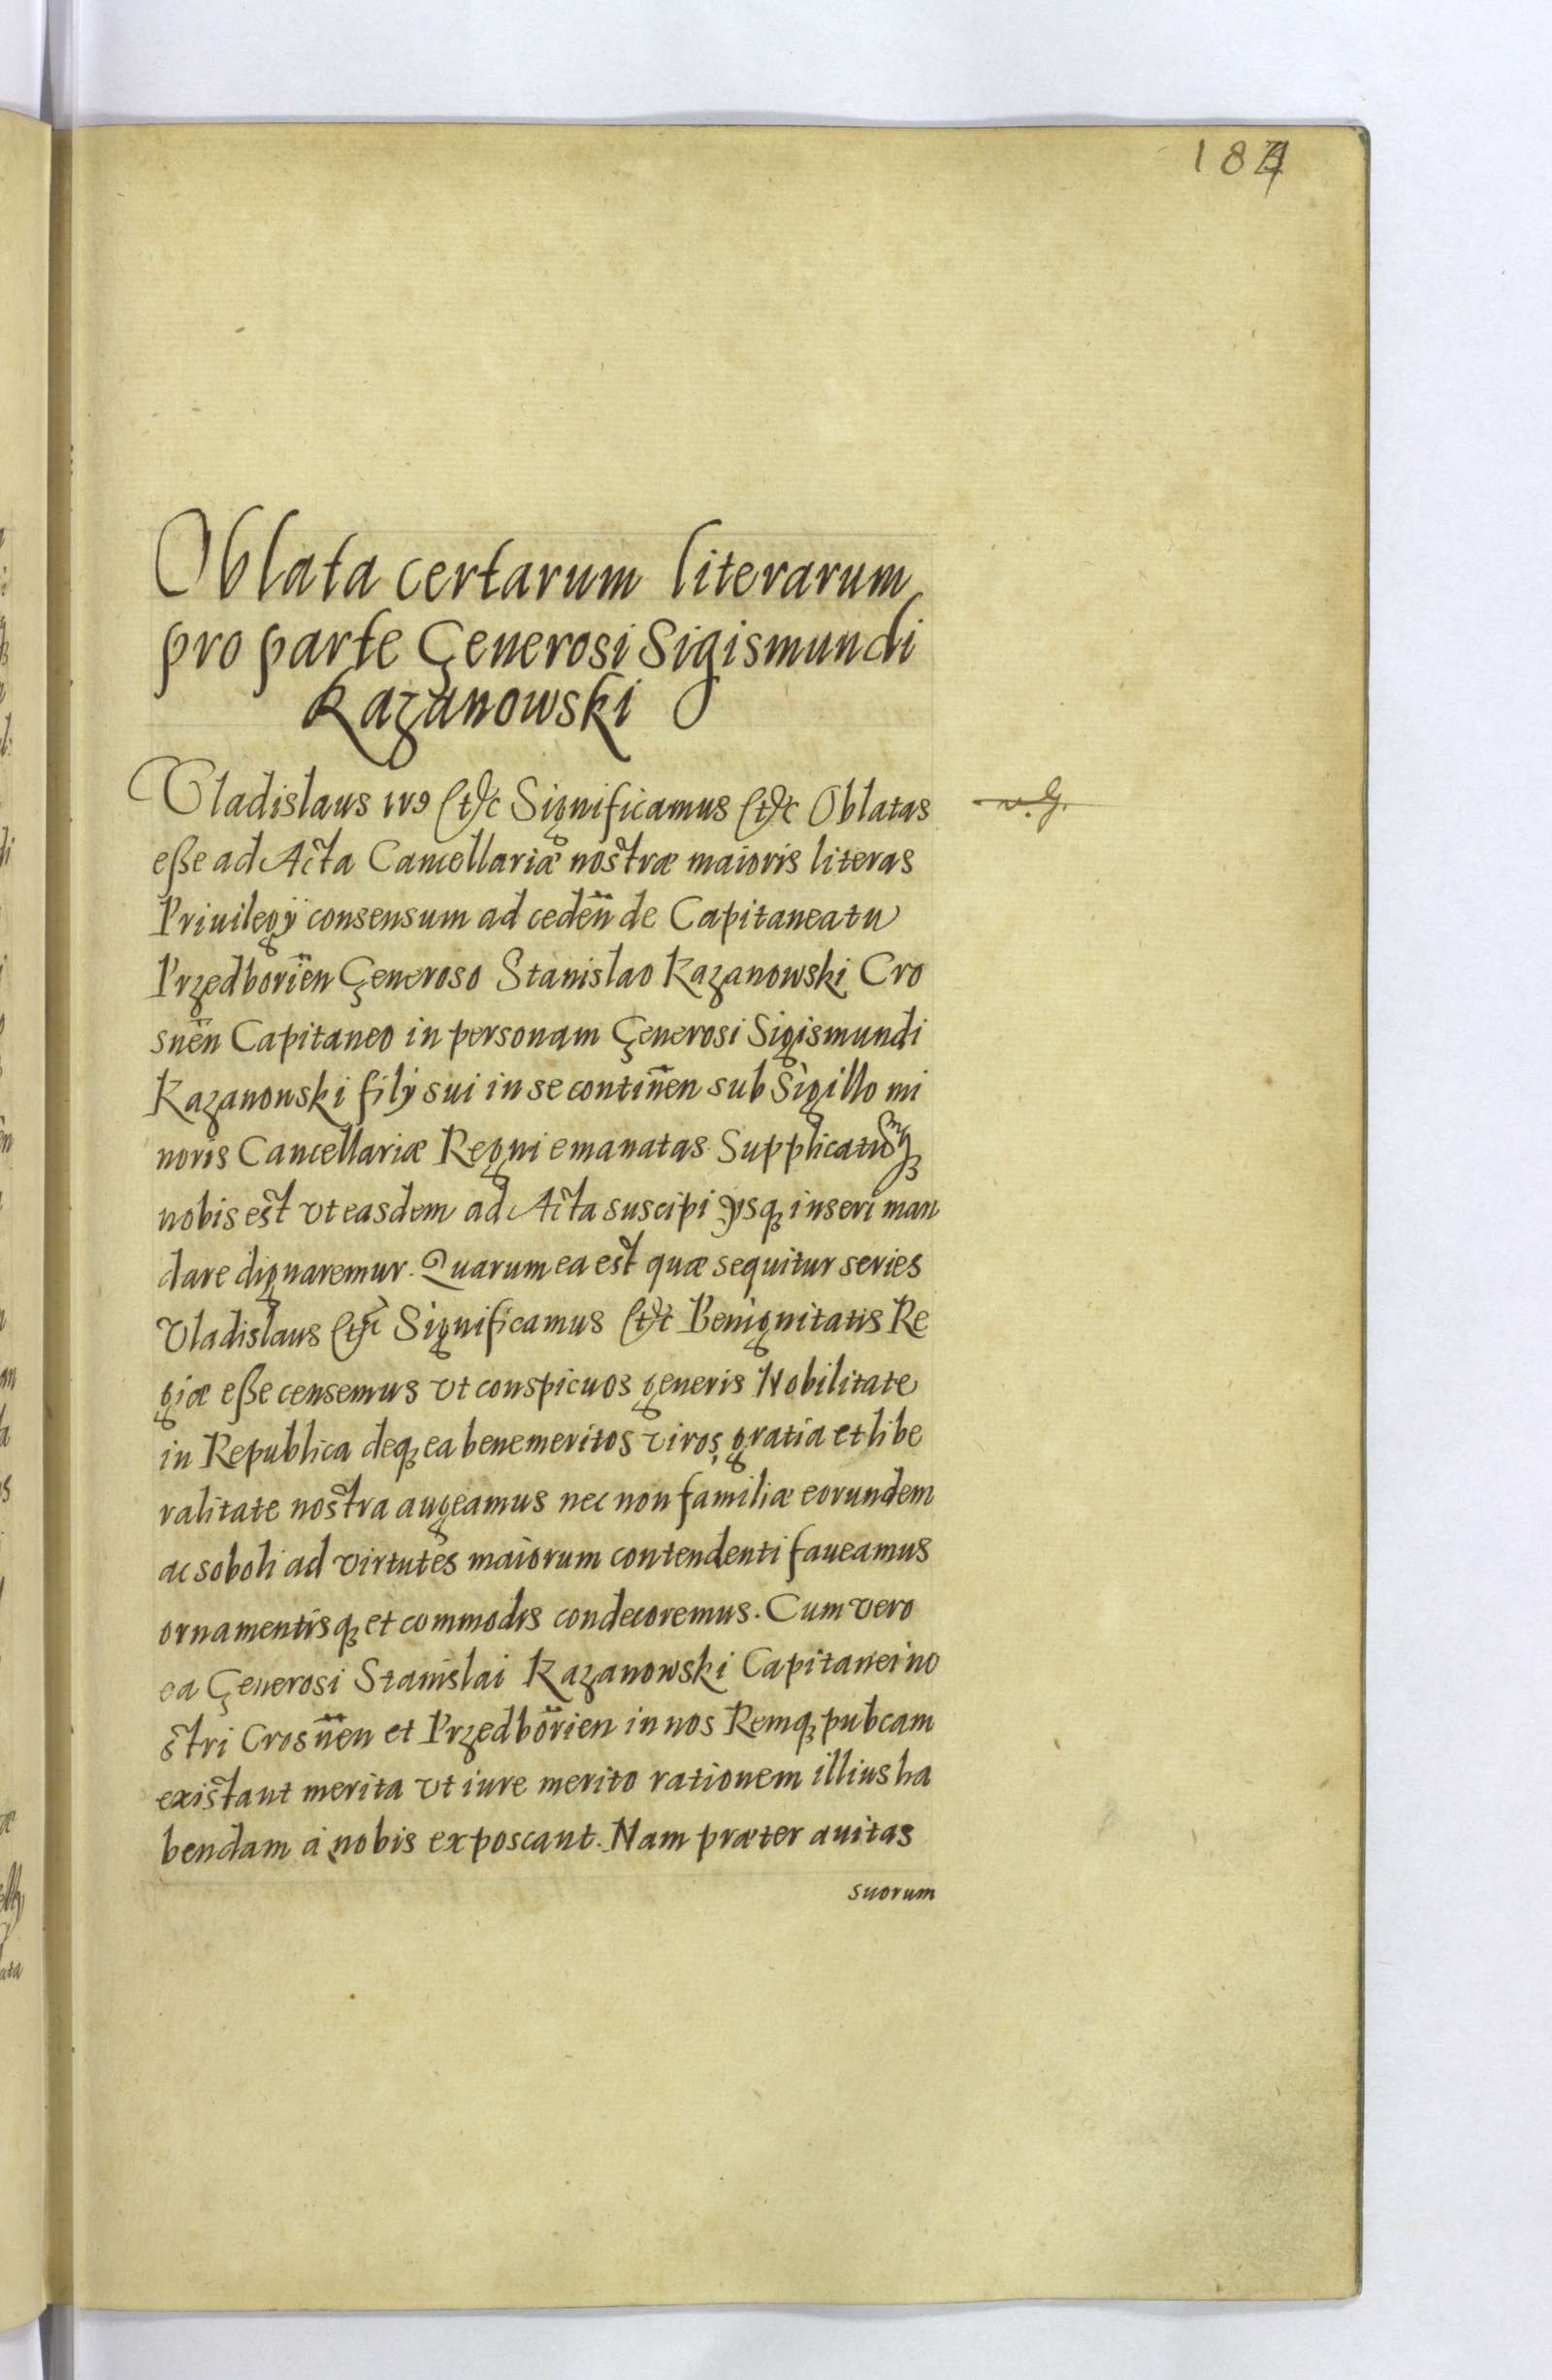 Oblata certarum literarum
pro parte Generosi Sigismundi
Kazanowski
Vladislaus IV9 etc Significamus etc Oblatas
eße ad Acta Cancellariæ nostræ maioris literas
Priuilegÿ consensum ad cedeñ de Capitaneatu
Przedborieñ Generoso Stanislao Kazanowski Cro
sneñ Capitaneo in personam Generosi Sigismundi
Kazanowski filÿ sui in se contineñ sub Sigillo mi
noris Cancellariæ Regni emanatas. Supplicatumq;
nobis est vt easdem ad Acta suscipi ÿsq; inseri man
dare dignaremur. Quarum ea est quæ sequitur series
Vladislaus etc Significamus etc Benignitatis Re
giæ eße censemus vt conspicuos generis Nobilitate
in Republica deq; ea benemeritos viros, gratia et libe
ralitate nostra augeamus nec non familiæ eorundem
ac soboli ad virtutes maiorum contendenti faueamus
ornamentisq; et commodis condecoremus. Cum vero
ea Generosi Stanislai Kazanowski Capitanei no
stri Crosneñ et Przedborieñ in nos Remq; pubcam
existant merita vt iure merito rationem illius ha
bendam a nobis exposcant. Nam præter auitas
suorum